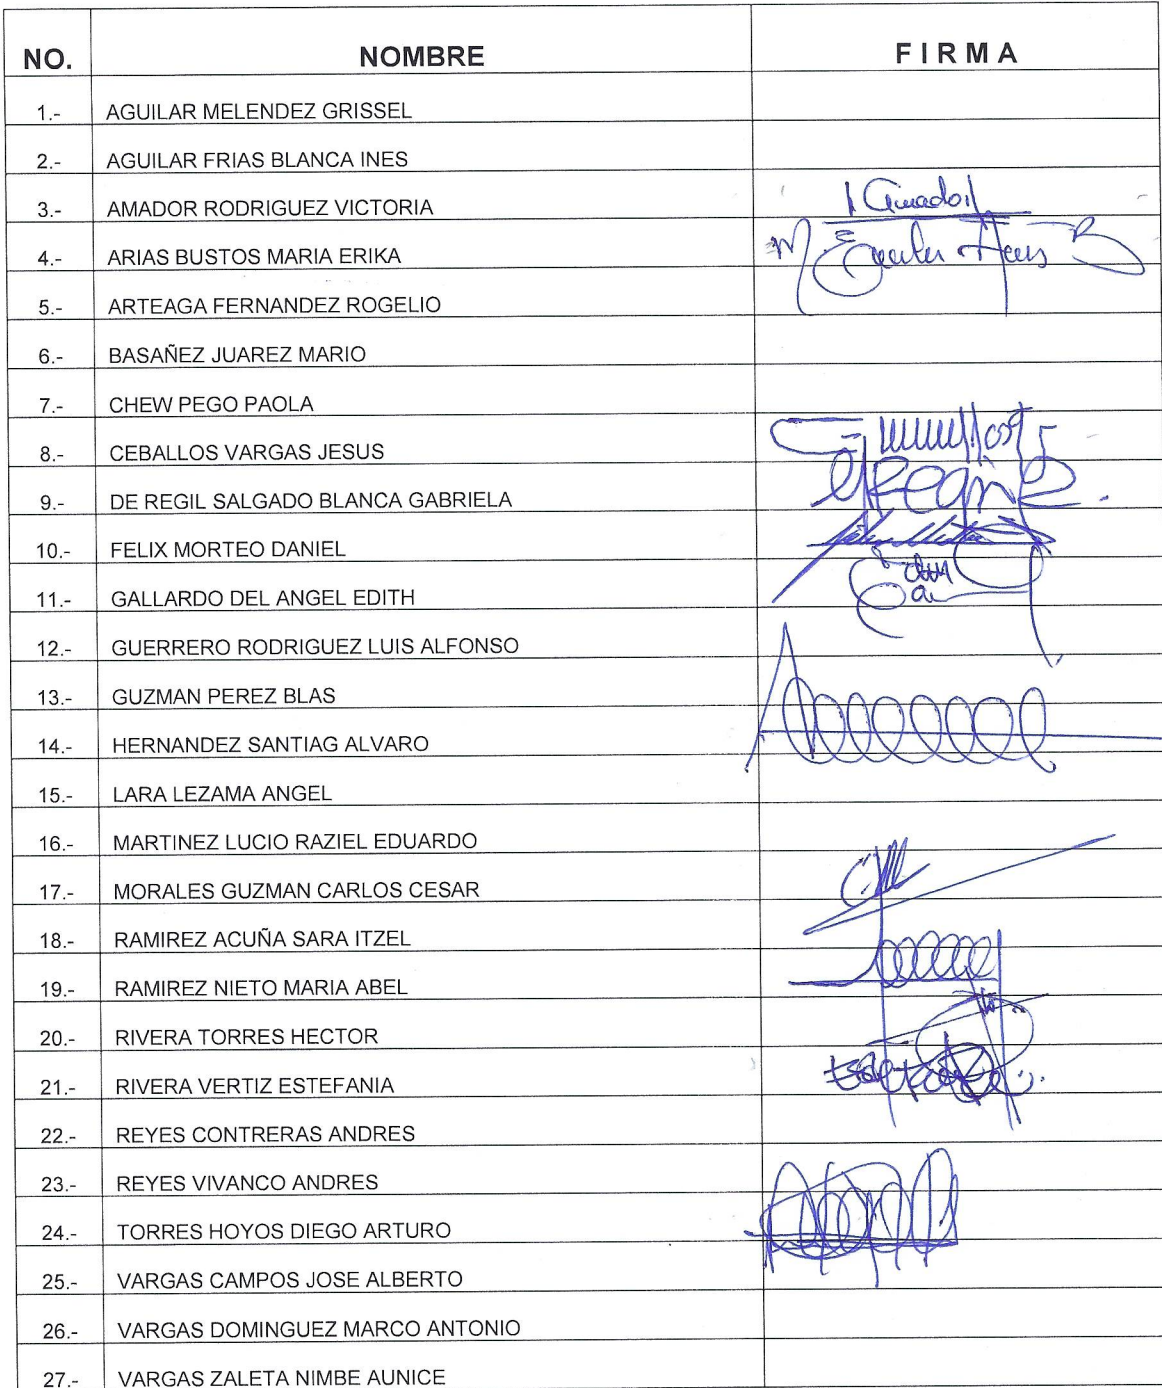 NO. NOMBRE F I R M A
1.- AGUILAR MELENDEZ GRISSEL
2.- AGUILAR FRIAS BLANCA INES
3.- AMADOR RODRIGUEZ VICTORIA
4.- ARIAS BUSTOS MARIA ERIKA
5.- ARTEAGA FERNANDEZ ROGELIO
6.- BASAÑEZ JUAREZ MARIO
7.- CHEW PEGO PAOLA
8.- CEBALLOS VARGAS JESUS
9.- DE REGIL SALGADO BLANCA GABRIELA
10.- FELIX MORTEO DANIEL
11.- GALLARDO DEL ANGEL EDITH
12.- GUERRERO RODRIGUEZ LUIS ALFONSO
13.- GUZMAN PEREZ BLAS
14.- HERNANDEZ SANTIAG ALVARO
15.- LARA LEZAMA ANGEL
16.- MARTINEZ LUCIO RAZIEL EDUARDO
17.- MORALES GUZMAN CARLOS CESAR
18.- RAMIREZ ACUÑA SARA ITZEL
19.- RAMIREZ NIETO MARIA ABEL
20.- RIVERA TORRES HECTOR
21.- RIVERA VERTIZ ESTEFANIA
22.- REYES CONTRERAS ANDRES
23.- REYES VIVANCO ANDRES
24.- TORRES HOYOS DIEGO ARTURO
25.- VARGAS CAMPOS JOSE ALBERTO
26.- VARGAS DOMINGUEZ MARCO ANTONIO
27.- VARGAS ZALETA NIMBE AUNICE